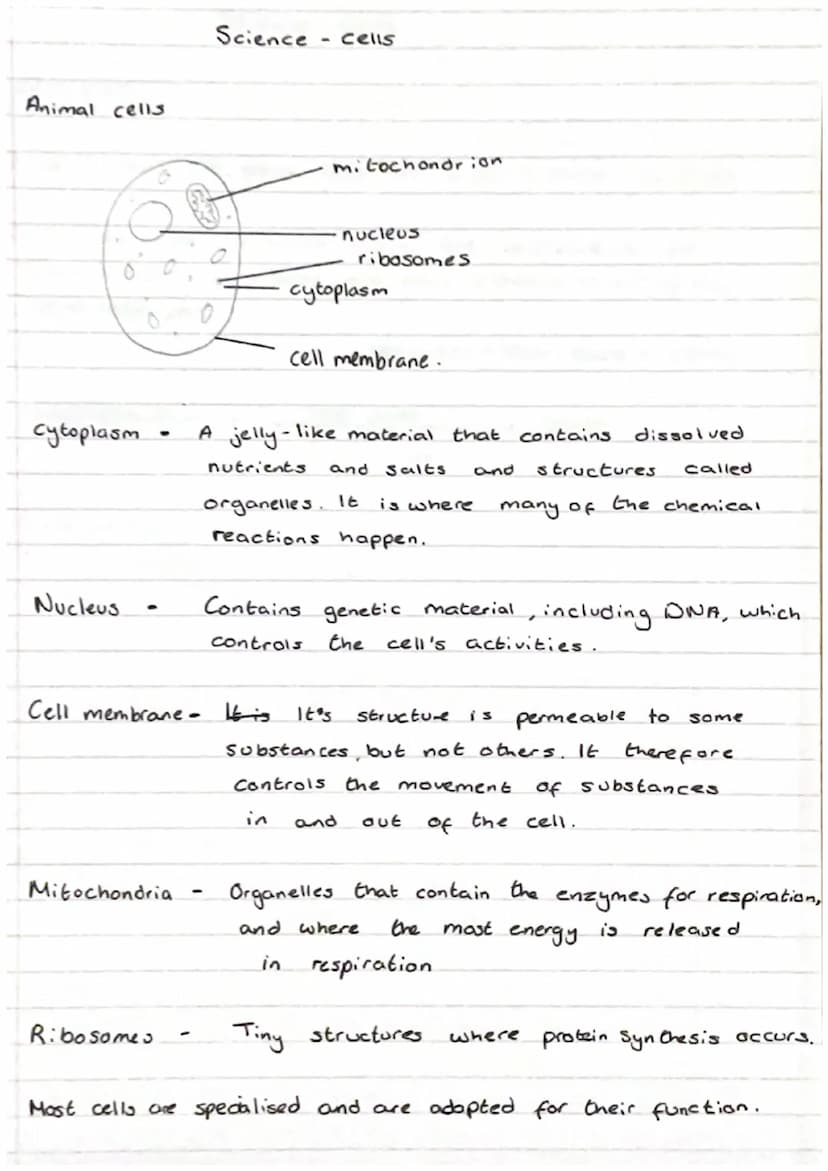 Science - cells
Animal cells
mitochondrion
nucleus
ribosomes
cytoplasm
cell membrane.
Cytoplasm - A jelly-like material that contains dissolved
nutrients and salts and structures called
organelles. It is where many of the chemical
reactions happen.
Nucleus - Contains genetic material, including DNA, which
controls the cell's activities.
Cell membrane - It is It's structure is permeable to some
substances, but not others. It therefore
controls the movement of substances
in and out of the cell.
Mitochondria - Organelles that contain the enzymes for respiration,
and where the most energy is released
in respiration
Ribosomes - Tiny structures where protein synthesis occurs.
Most cells are specialised and are adapted for their function.